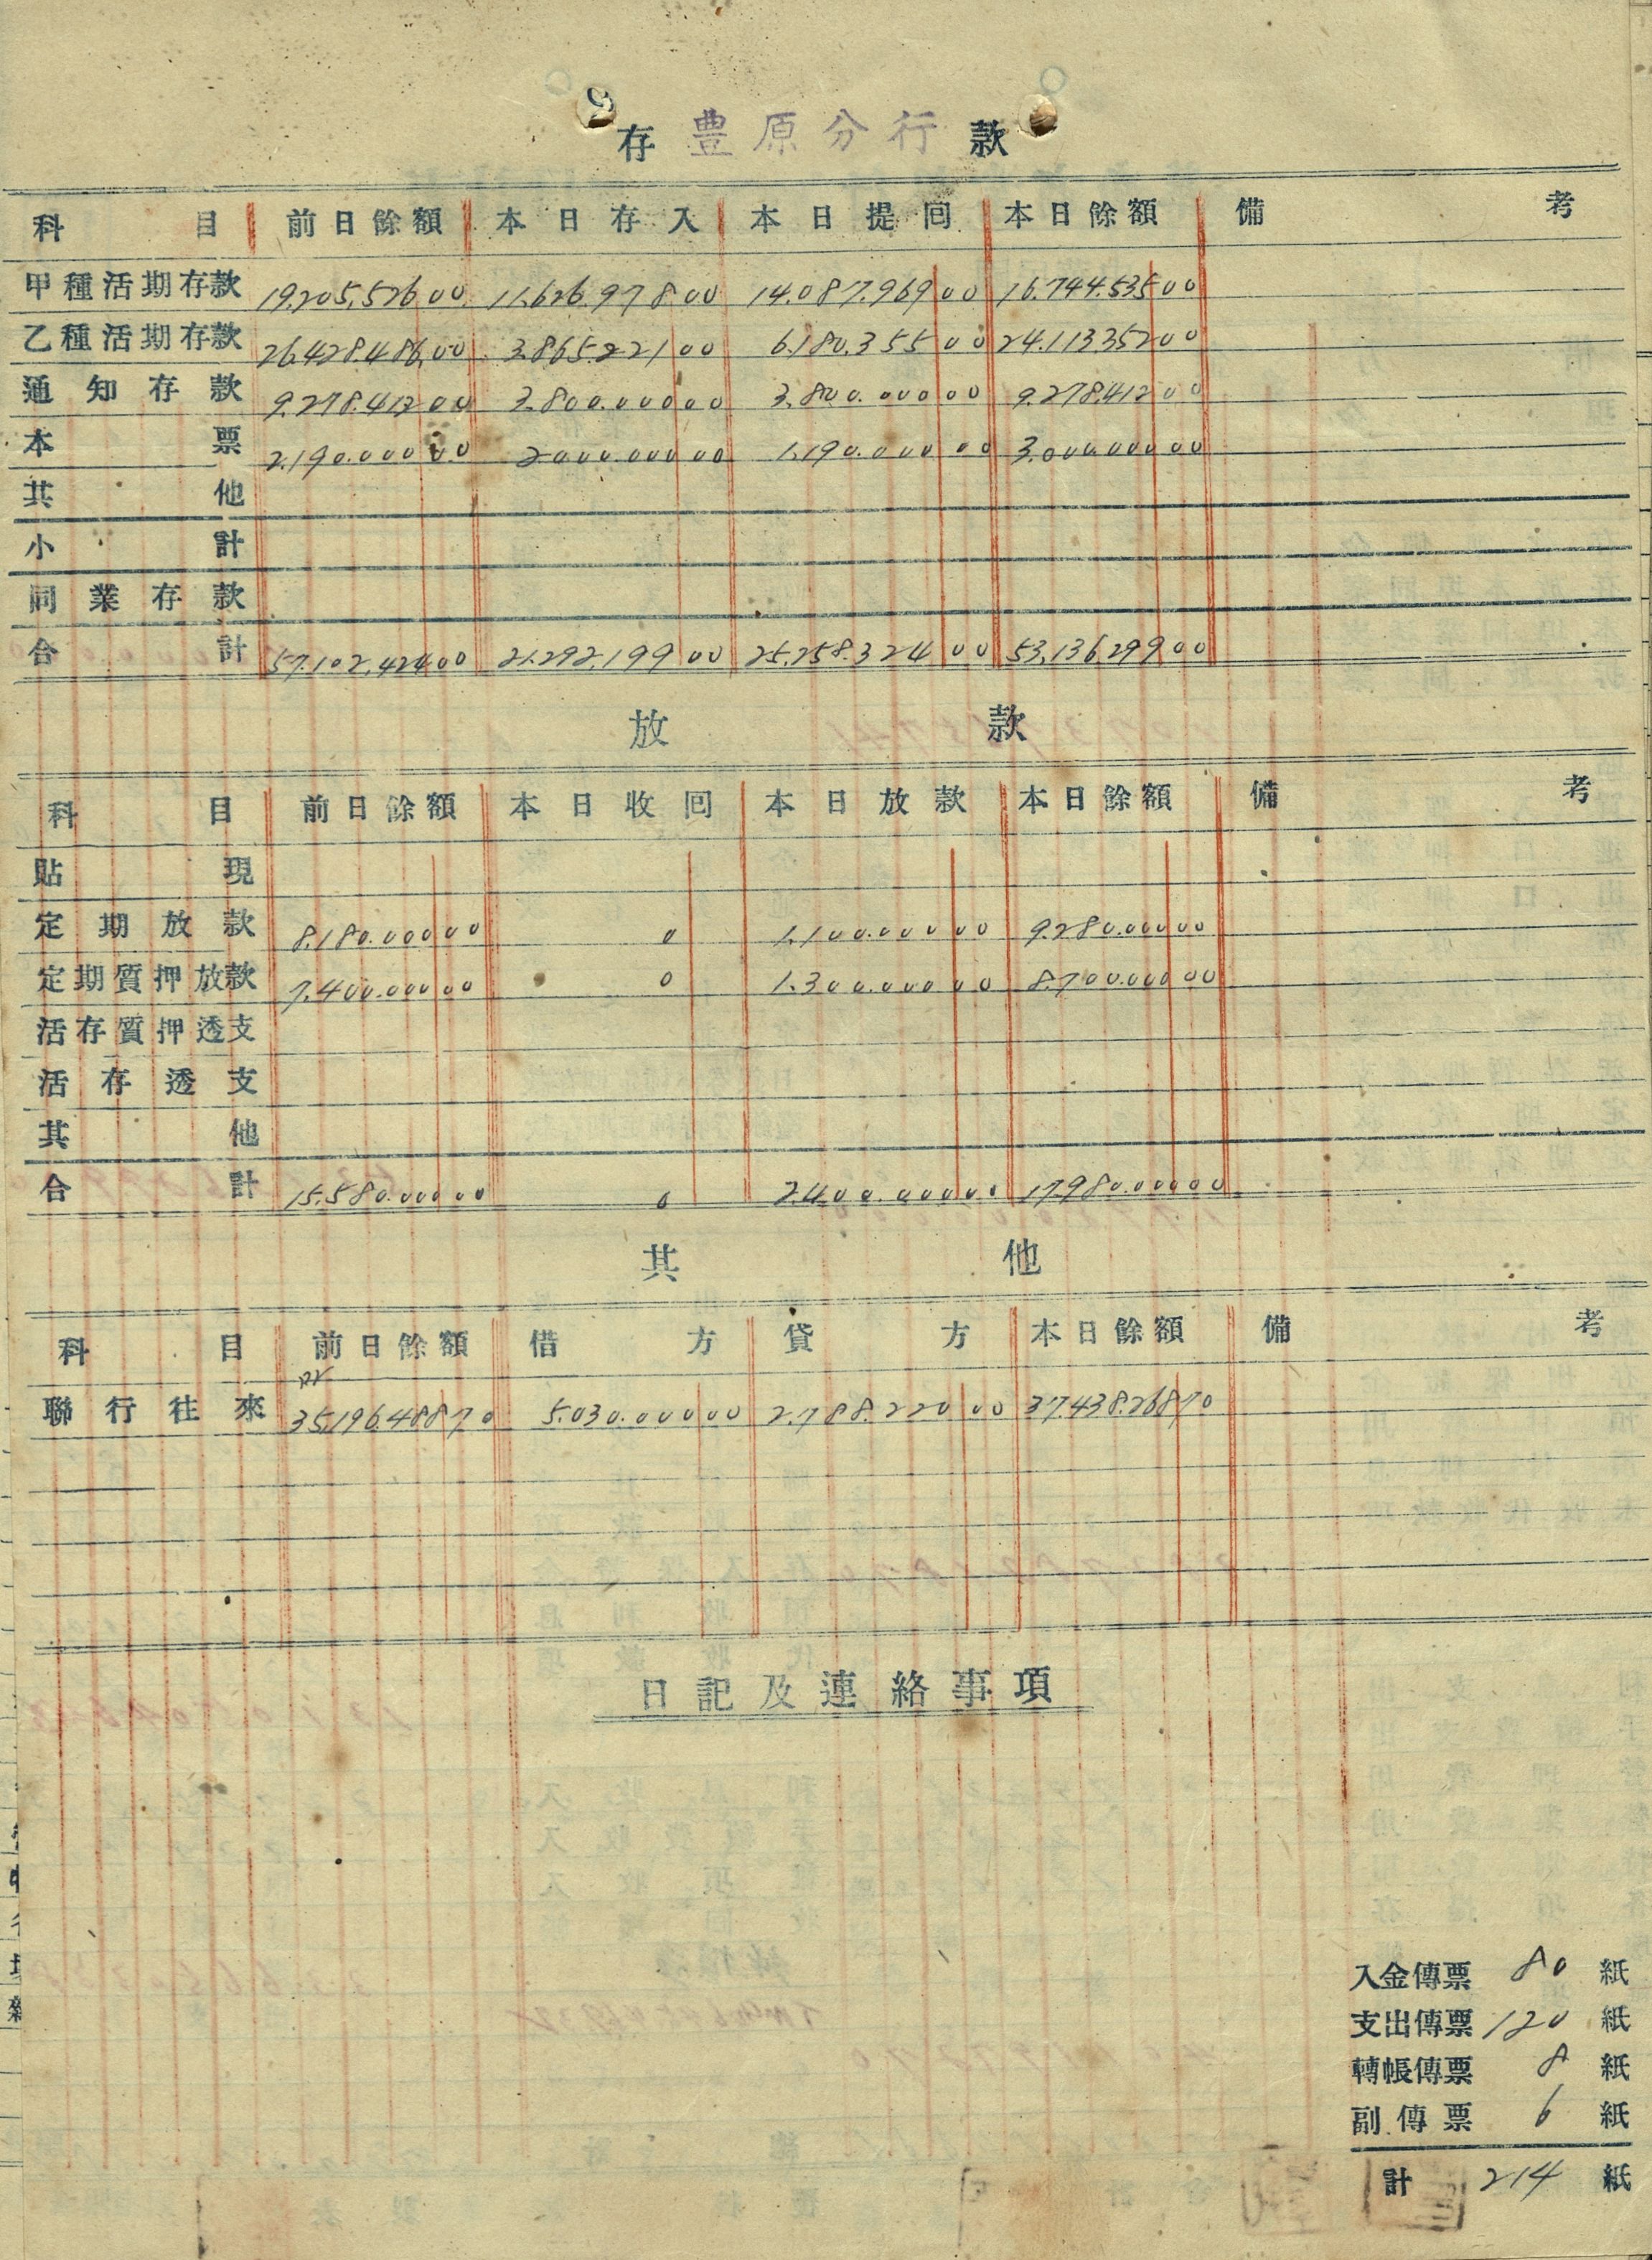 存 豊原分行 款
科目 前日餘額 本日存入 本日提回 本日餘額 備考
甲種活期存款 19,205,526 00 11,626,978 00 14,087,969 00 16,744,535 00
乙種活期存款 26,428,486 00 3,865,221 00 6,180,355 00 24,113,352 00
通知存款 9,278,412 00 3,800,000 00 3,800,000 00 9,278,412 00
本票 2,190,000 00 2,000,000 00 1,190,000 00 3,000,000 00
其他
小計
同業存款
合計 57,102,424 00 21,292,199 00 25,258,324 00 53,136,299 00
放款
科目 前日餘額 本日收回 本日放款 本日餘額 備考
貼現
定期放款 8,180,000 00 0 1,100,000 00 9,280,000 00
定期質押放款 7,400,000 00 0 1,300,000 00 8,700,000 00
活存質押透支
活存透支
其他
合計 15,580,000 00 0 2,400,000 00 17,980,000 00
其他
科目 前日餘額 借方 貸方 本日餘額 備考
聯行往來 35,196,488 70 5,030,000 00 2,788,220 00 37,438,268 70
日記及連絡事項
入金傳票 80 紙
支出傳票 120 紙
轉帳傳票 8 紙
副傳票 6 紙
計 214 紙